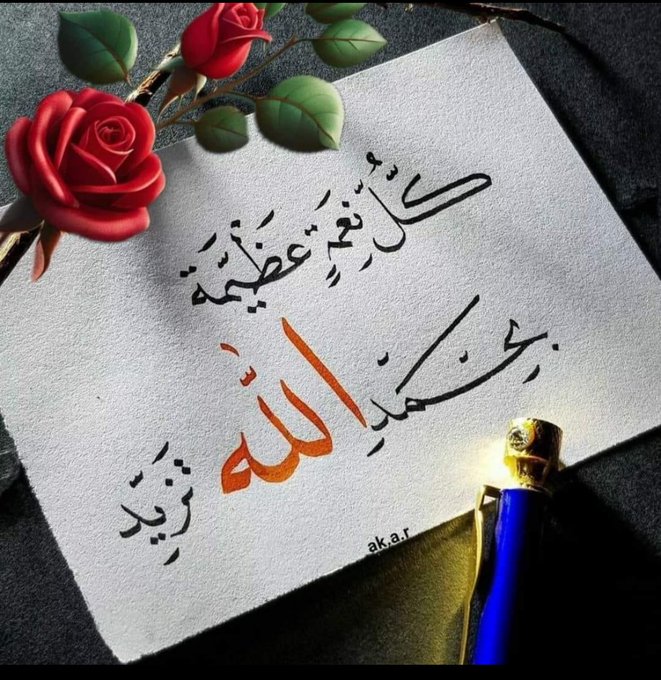 كُلُّ نِعْمَةٍ عَظِيمَة
بِحَمْدِ اللّٰه تَزِيد
ak.a.r